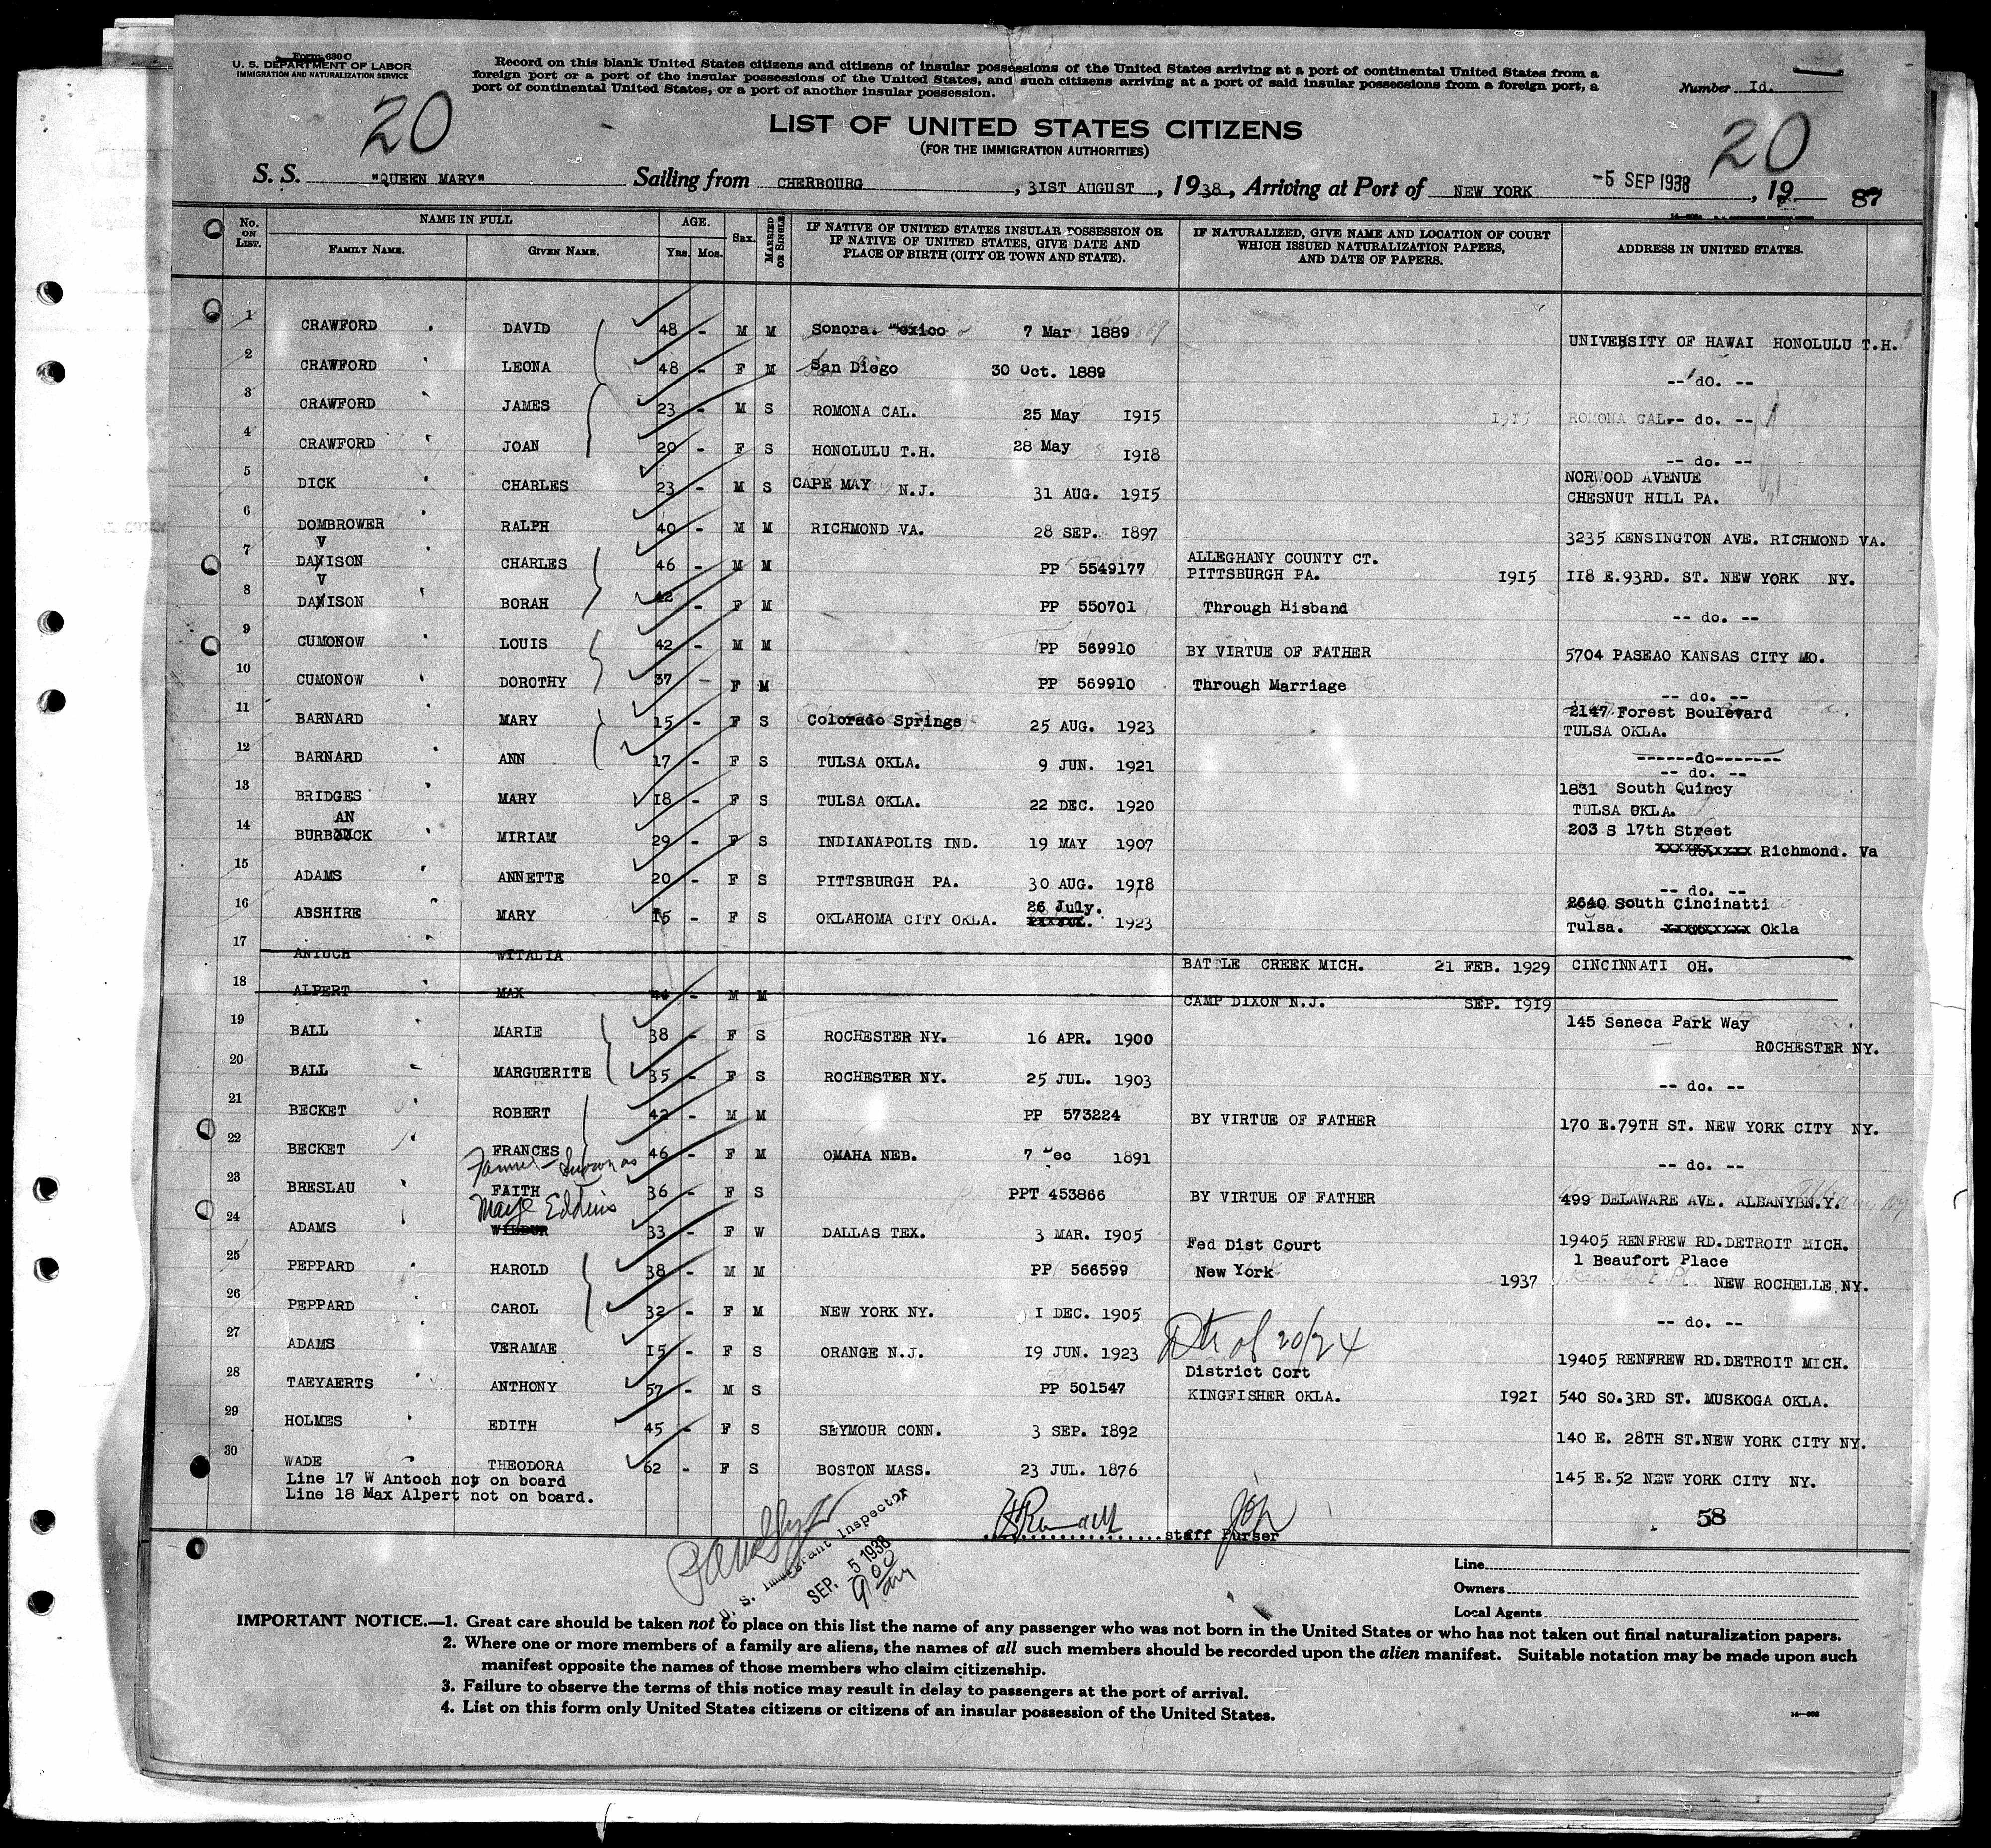 Form 630 C
U. S. DEPARTMENT OF LABOR
IMMIGRATION AND NATURALIZATION SERVICE
Record on this blank United States citizens and citizens of insular possessions of the United States arriving at a port of continental United States from a
foreign port or a port of the insular possessions of the United States, and such citizens arriving at a port of said insular possessions from a foreign port, a
port of continental United States, or a port of another insular possession.
Number Id.
20
20
LIST OF UNITED STATES CITIZENS
(FOR THE IMMIGRATION AUTHORITIES)
S. S. "QUEEN MARY" Sailing from CHERBOURG, 31ST AUGUST, 1938, Arriving at Port of NEW YORK -5 SEP 1938, 19 87
No. ON LIST. NAME IN FULL AGE. SEX. MARRIED OR SINGLE IF NATIVE OF UNITED STATES INSULAR POSSESSION OR IF NATIVE OF UNITED STATES, GIVE DATE AND PLACE OF BIRTH (CITY OR TOWN AND STATE). IF NATURALIZED, GIVE NAME AND LOCATION OF COURT WHICH ISSUED NATURALIZATION PAPERS, AND DATE OF PAPERS. ADDRESS IN UNITED STATES.
FAMILY NAME. GIVEN NAME. Yrs. Mos.
1 CRAWFORD DAVID 48 - M M Sonora. Mexico 7 Mar 1889 UNIVERSITY OF HAWAI HONOLULU T.H.
2 CRAWFORD LEONA 48 - F M San Diego 30 Oct. 1889 -- do. --
3 CRAWFORD JAMES 23 - M S ROMONA CAL. 25 May 1915 1915 ROMONA CAL -- do. --
4 CRAWFORD JOAN 20 - F S HONOLULU T.H. 28 May 1918 -- do. --
5 DICK CHARLES 23 - M S CAPE MAY N.J. 31 AUG. 1915 NORWOOD AVENUE
CHESNUT HILL PA.
6 DOMBROWER RALPH 40 - M M RICHMOND VA. 28 SEP. 1897 3235 KENSINGTON AVE. RICHMOND VA.
V
7 DAVISON CHARLES 46 - M M PP 5549177 ALLEGHANY COUNTY CT.
PITTSBURGH PA. 1915 118 E.93RD. ST. NEW YORK NY.
V
8 DAVISON BORAH 42 - F M PP 550701 Through Hisband -- do. --
9 CUMONOW LOUIS 42 - M M PP 569910 BY VIRTUE OF FATHER 5704 PASEAO KANSAS CITY MO.
10 CUMONOW DOROTHY 37 - F M PP 569910 Through Marriage -- do. --
11 BARNARD MARY 15 - F S Colorado Springs 25 AUG. 1923 2147 Forest Boulevard
TULSA OKLA.
12 BARNARD ANN 17 - F S TULSA OKLA. 9 JUN. 1921 ------do-------
-- do. --
13 BRIDGES MARY 18 - F S TULSA OKLA. 22 DEC. 1920 1831 South Quincy
TULSA OKLA.
AN
14 BURBXXCK MIRIAM 29 - F S INDIANAPOLIS IND. 19 MAY 1907 203 S 17th Street
xxxxxxxxxx Richmond. Va
15 ADAMS ANNETTE 20 - F S PITTSBURGH PA. 30 AUG. 1918 -- do. --
16 ABSHIRE MARY 15 - F S OKLAHOMA CITY OKLA. 26 July. 1923 2640 South Cincinatti
Tulsa. xxxxxxxxx Okla
17 ANTOCH WITALIA BATTLE CREEK MICH. 21 FEB. 1929 CINCINNATI OH.
18 ALPERT MAX 44 - M M CAMP DIXON N.J. SEP. 1919
19 BALL MARIE 38 - F S ROCHESTER NY. 16 APR. 1900 145 Seneca Park Way
ROCHESTER NY.
20 BALL MARGUERITE 35 - F S ROCHESTER NY. 25 JUL. 1903 -- do. --
21 BECKET ROBERT 42 - M M PP 573224 BY VIRTUE OF FATHER 170 E.79TH ST. NEW YORK CITY NY.
22 BECKET FRANCES 46 - F M OMAHA NEB. 7 Dec 1891 -- do. --
known as
23 BRESLAU FAITH 36 - F S PPT 453866 BY VIRTUE OF FATHER 499 DELAWARE AVE. ALBANYBN.Y.
Maye Eddins
24 ADAMS WILBUR 33 - F W DALLAS TEX. 3 MAR. 1905 19405 RENFREW RD.DETROIT MICH.
25 PEPPARD HAROLD 38 - M M PP 566599 Fed Dist Court
New York 1937 1 Beaufort Place
NEW ROCHELLE NY.
26 PEPPARD CAROL 32 - F M NEW YORK NY. 1 DEC. 1905 -- do. --
27 ADAMS VERAMAE 15 - F S ORANGE N.J. 19 JUN. 1923 Dtr of 20/24 19405 RENFREW RD.DETROIT MICH.
28 TAEYAERTS ANTHONY 57 - M S PP 501547 District Cort
KINGFISHER OKLA. 1921 540 SO.3RD ST. MUSKOGA OKLA.
29 HOLMES EDITH 45 - F S SEYMOUR CONN. 3 SEP. 1892 140 E. 28TH ST.NEW YORK CITY NY.
30 WADE THEODORA 62 - F S BOSTON MASS. 23 JUL. 1876 145 E.52 NEW YORK CITY NY.
Line 17 W Antoch not on board
Line 18 Max Alpert not on board.
58
staff Purser
U. S. Immigrant Inspector
SEP. 5 1938
9 00 am
Line
Owners
Local Agents
IMPORTANT NOTICE.—1. Great care should be taken not to place on this list the name of any passenger who was not born in the United States or who has not taken out final naturalization papers.
2. Where one or more members of a family are aliens, the names of all such members should be recorded upon the alien manifest. Suitable notation may be made upon such
manifest opposite the names of those members who claim citizenship.
3. Failure to observe the terms of this notice may result in delay to passengers at the port of arrival.
4. List on this form only United States citizens or citizens of an insular possession of the United States.